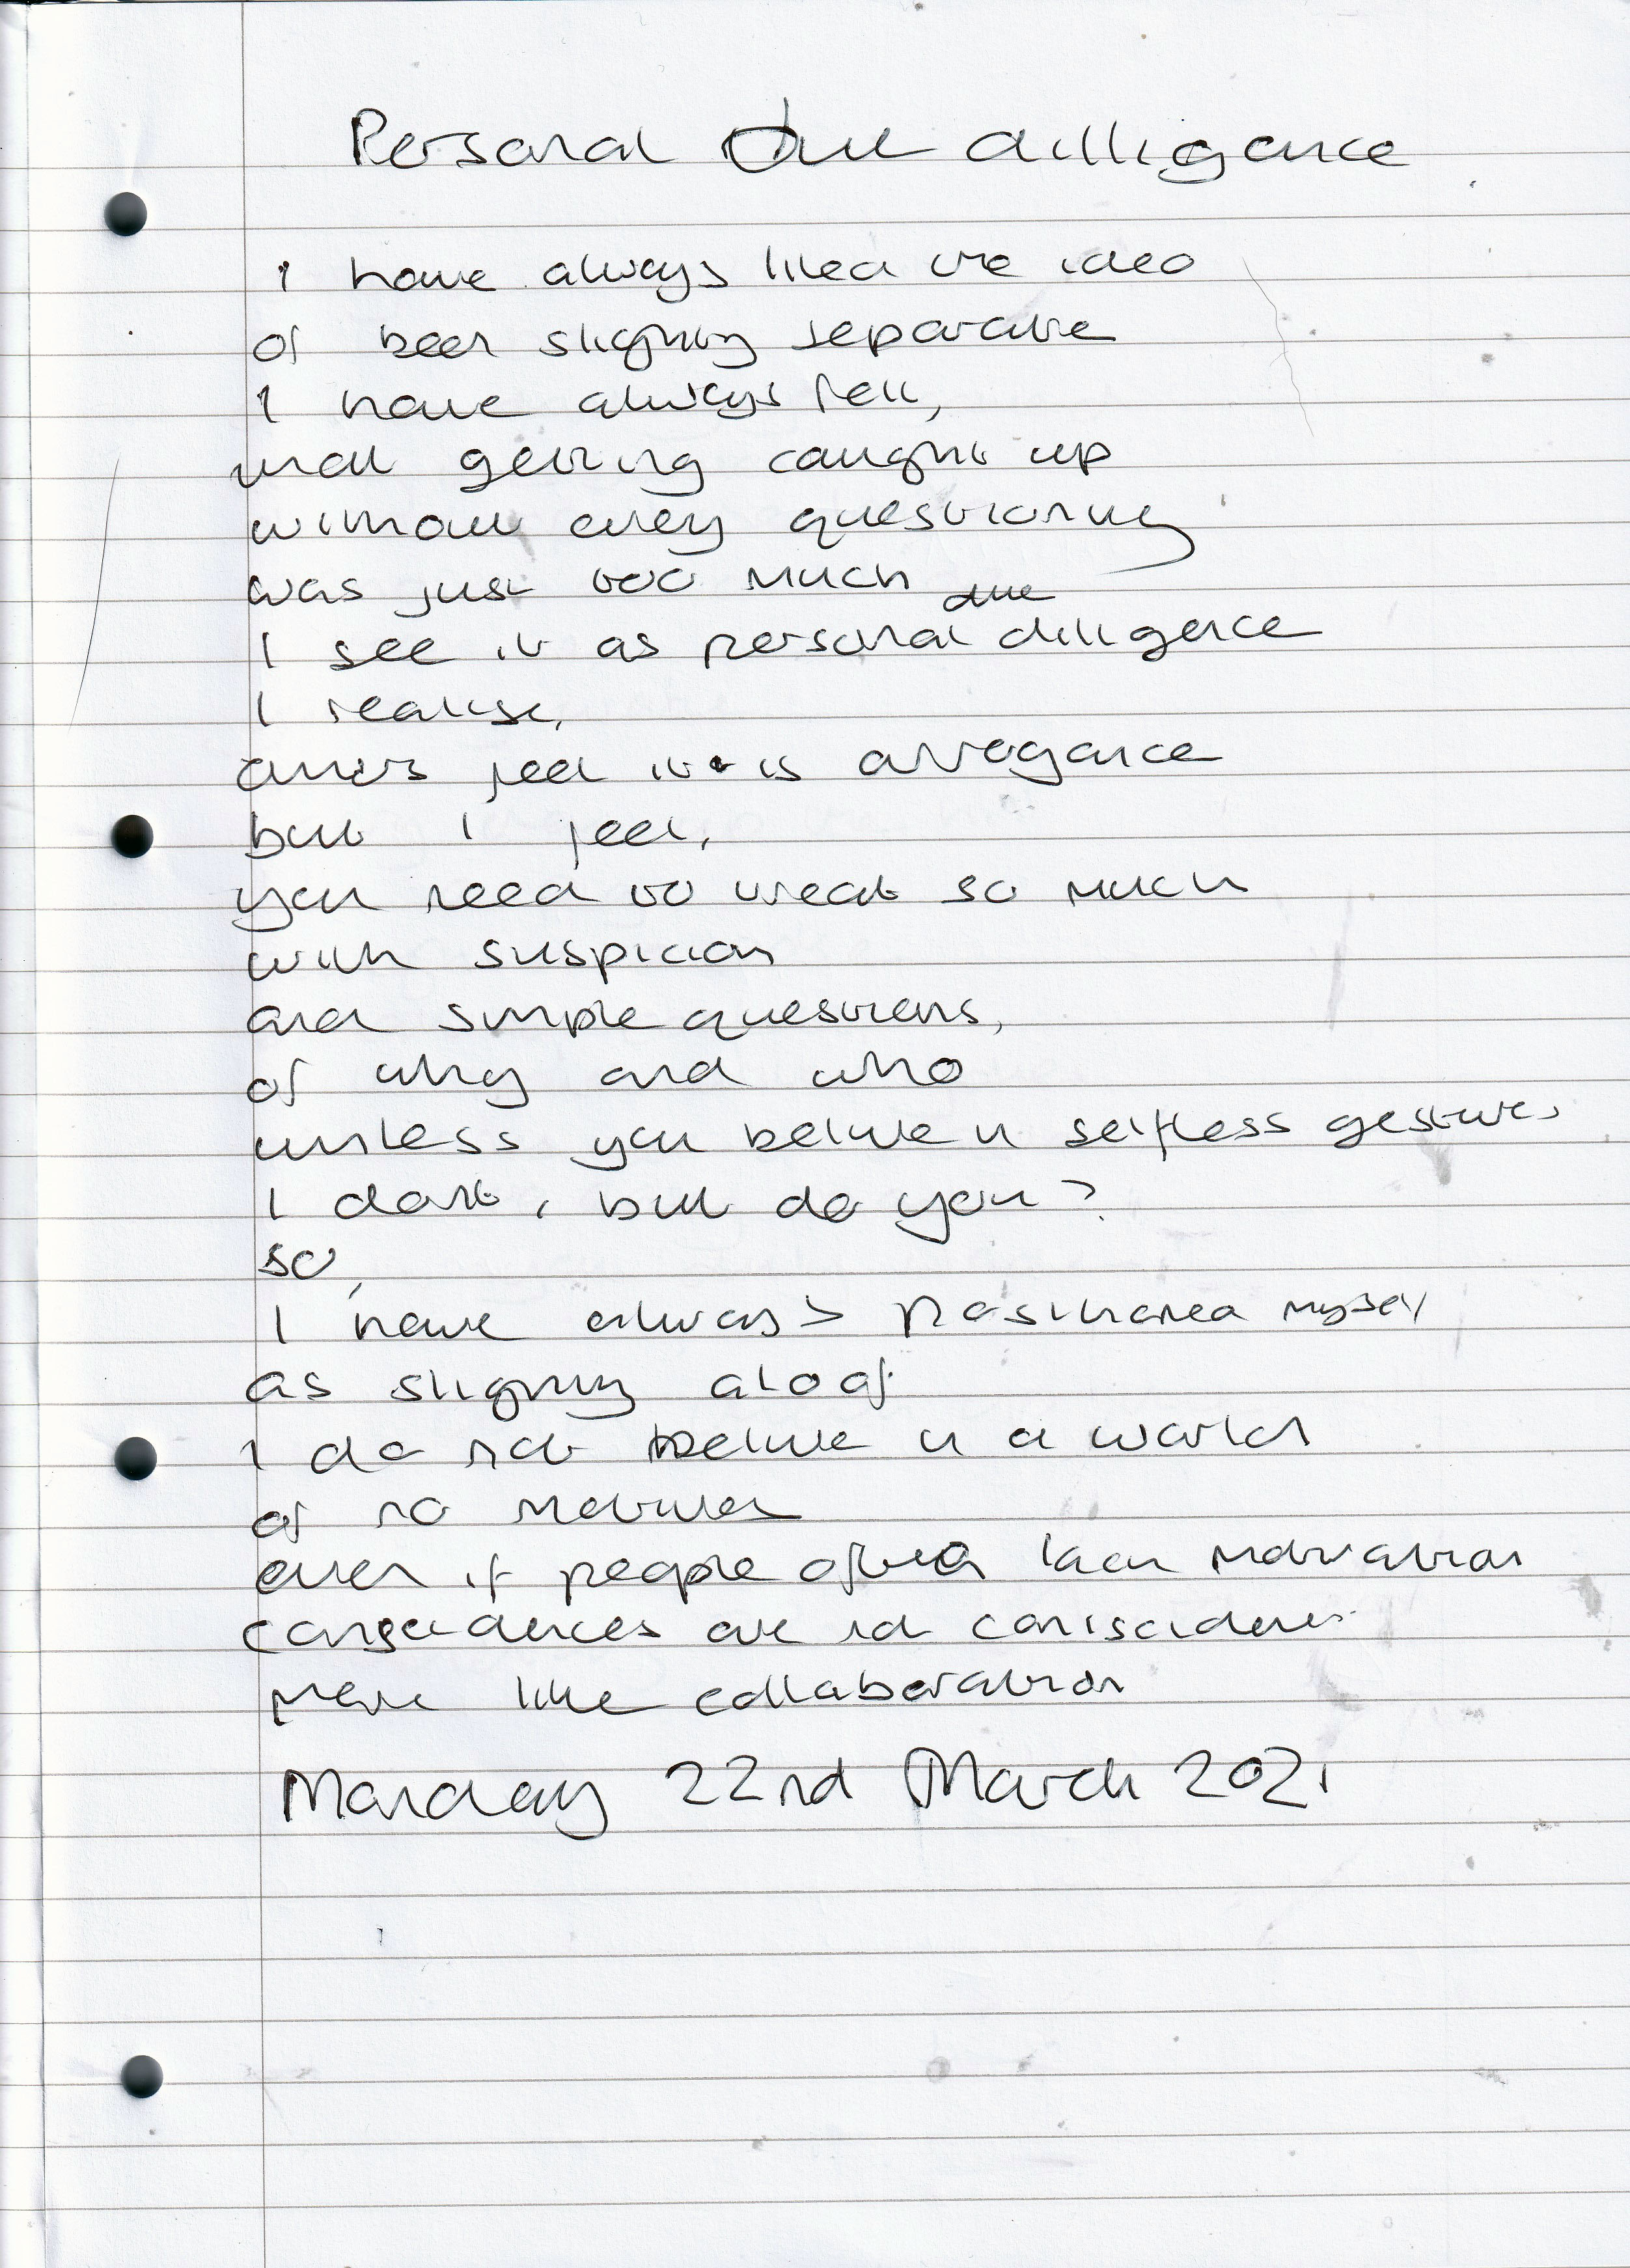 Personal due dilligence
I have always liked the idea
of been slightly separate
I have always felt,
that getting caught up
without every questioning
was just too much
I see it as personal due diligence
I realise,
others feel it is arrogance
but I feel,
you need to treat so much
with suspicion
and simple questions,
of why and who
unless you believe in selfless gestures
I don't, but do you?
so,
I have always positioned myself
as slightly aloof
I do not believe in a world
of no motives
even if people often lack motivation
are not
more like collaboration
Monday 22nd March 2021